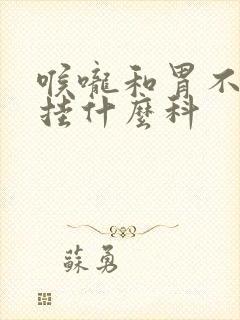 喉嚨和胃不
挂什麼科
蘇勇